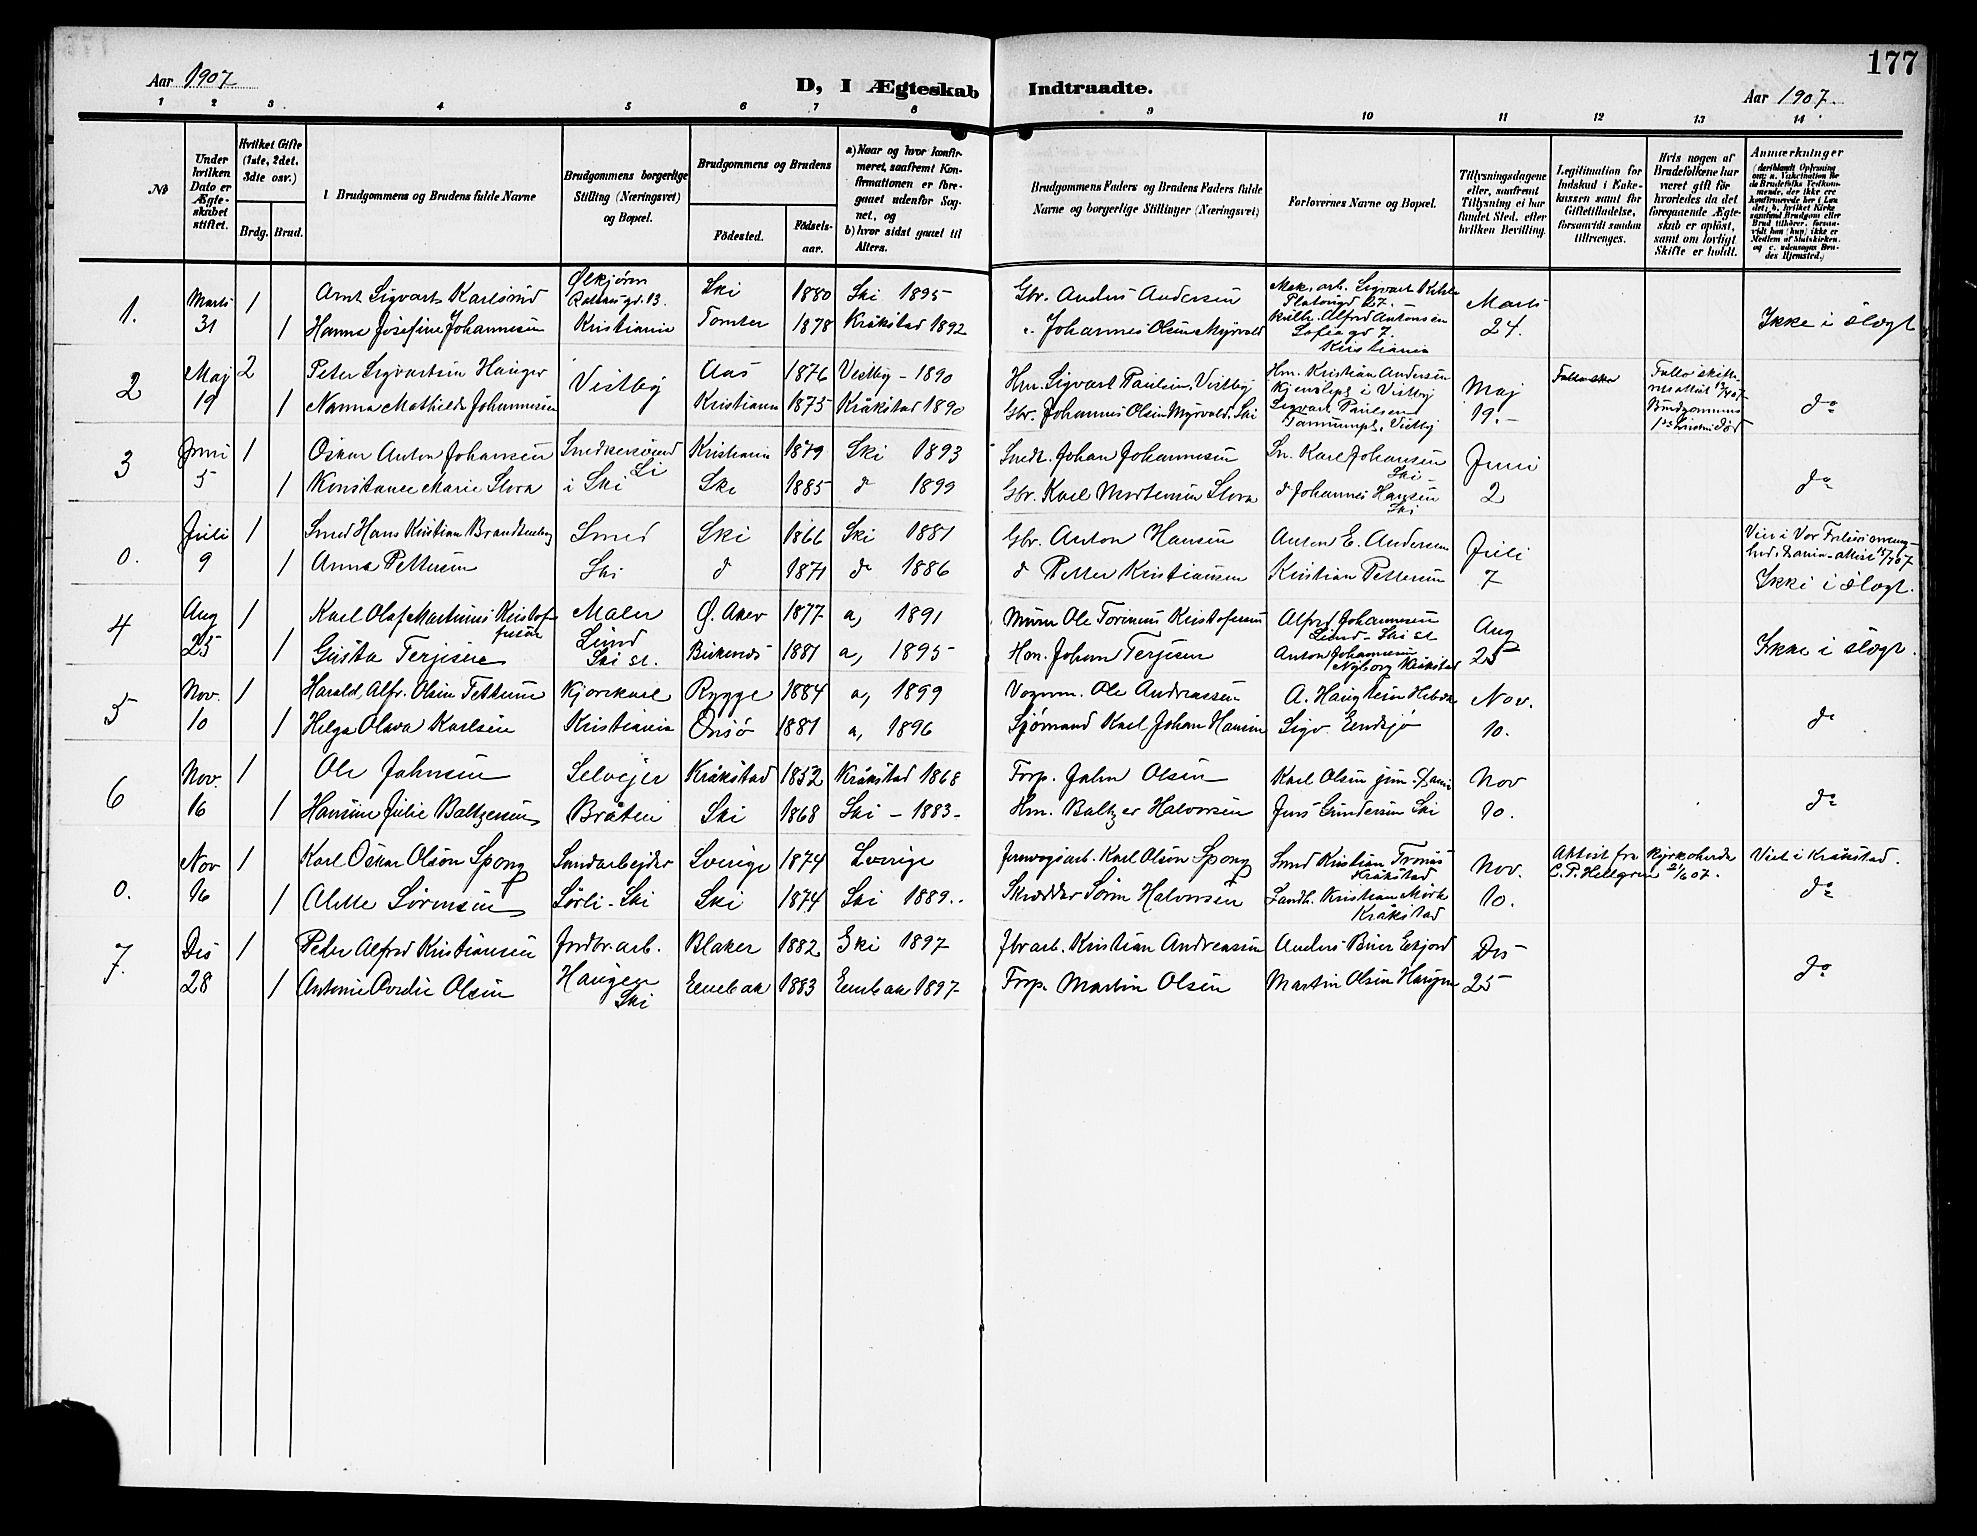 177
Aar 1907.
D, I Ægteskab Indtraadte.
Aar 1907.
1 2 3 4 5 6 7 8 9 10 11 12 13 14
No
Under hvilken Dato er Ægteskabet stiftet.
Hvilket Gifte (1ste, 2det, 3die osv.)
Brdg. Brud.
Brudgommens og Brudens fulde Navne
Brudgommens borgerlige Stilling (Næringsvei) og Bopæl.
Brudgommens og Brudens
Fødested. Fødselsaar.
a) Naar og hvor konfirmeret, saafremt Konfirmationen er foregaaet udenfor Sognet, og
b) hvor sidst gaaet til Alters.
Brudgommens Faders og Brudens Faders fulde Navne og borgerlige Stillinger (Næringsvei)
Forlovernes Navne og Bopæl.
Tillysningsdagene eller, saafremt Tillysning ei har fundet Sted, efter hvilken Bevilling.
Legitimation for Indskud i Enkekassen samt for Giftetilladelse, forsaavidt saadan tiltrænges.
Hvis nogen af Brudefolkene har været gift før hvorledes da det foregaaende Ægteskab er opløst, samt om lovligt Skifte er holdt.
Anmærkninger
1. Marts 1 Arnt Sigvart Karlsrud Ølkjører Ski 1880 Ski 1895 Gbr. Anders Andersen
Platousgd 27. Marts
31 1 Hanna Josefine Johannesen Kristiania Tomter 1878 Kråkstad 1892 Johannes Olsen Myrvold Alfred Antonsen Sofiegd 7. Kristiania 24. Ikke i slægt
2 Maj 2 Peter Sigvartsen Hauger Vestby Aas 1876 Vestby - 1890 Hm. Sigvart Paulsen, Vestby Hm. Kristian Andersen i Vestby Maj
19 1 Nanna Mathilde Johannesen Kristiania 1875 Kråkstad 1890 Gbr. Johannes Olsen Myrvold, Ski Sigvart Paulsen Vestby 19.- do
3 Juni 1 Oskar Anton Johansen Snedkersvend Kristiania 1879 Ski 1893 Snedk. Johan Johannesen Sn. Karl Johansen Ski - Juni
5 1 Konstance Marie Slora i Ski Ski 1885 d 1899 Gbr. Karl Mortensen Slora d Johannes Hansen Ski 2 do
0. Juli 1 Smed Hans Kristian Brandtenborg Smed Ski 1866 Ski 1881 Gbr. Anton Hansen Anton E. Andersen Juli Viet i Vor Frelsers
9 1 Anna Pettersen Ski d 1871 do 1886 d Petter Kristiansen Kristian Pettersen 7 Ikke i slægt.
4 Aug 1 Karl Olaf Martinius Kristoffersen Maler Ø. Aker 1877 a, 1891 Murer Ole Torinius Kristofersen Alfred Johannesen Lund - Ski st. Aug
25 1 Gusta Terjesen Lund Ski st. Birkenes 1881 a, 1895 Hm. Johan Terjesen Anton Johannesen Nyborg Kråkstad 25 Ikke i slægt.
5 Nov. 1 Harald, Alfr. Olsen Kjørekarl Rygge 1884 a, 1899 Vognm. Ole Andreassen A. Haugsten Nov.
10 1 Helga Olava Karlsen Kristiania Onsø 1881 a, 1896 Sjømand Karl Johan Hansen Sigv. Endsjø 10. do
6 Nov. 1 Ole Jahnsen Selvejer Kråkstad 1852 Kråkstad 1868 Forp. Jahn Olsen Karl Olsen jun. Nov
16 1 Hansine Julie Baltzersen Bråten Ski 1868 Ski - 1883 - Hm. Baltzer Halvorsen Jens Gundersen Ski 10. do
0. Nov 1 Karl Oskar Olson Spong Landarbejder Sverige 1874 Sverige Jernvejsarb. Karl Olson Spong Smed Kristian Kråkstad Nov. Attest fra Kyrkoherde C. P. Hellgren 2/6 07. Viet i Kråkstad.
16 1 Alette Sørensen Sørli - Ski Ski 1874 Ski 1889.. Skrædder Søren Halvorsen Landh. Kristian Mørk Kråkstad 10. do
7. Des 1 Peder Alfred Kristiansen Jordbr. arb. Blaker 1882 Ski 1897 Jbrarb. Kristian Andreassen Anders Des
28 1 Antonie Ovedie Olsen Haugen Ski Enebak 1883 Enebak 1897 - Forp. Martin Olsen Martin Olsen Haugen 25 do